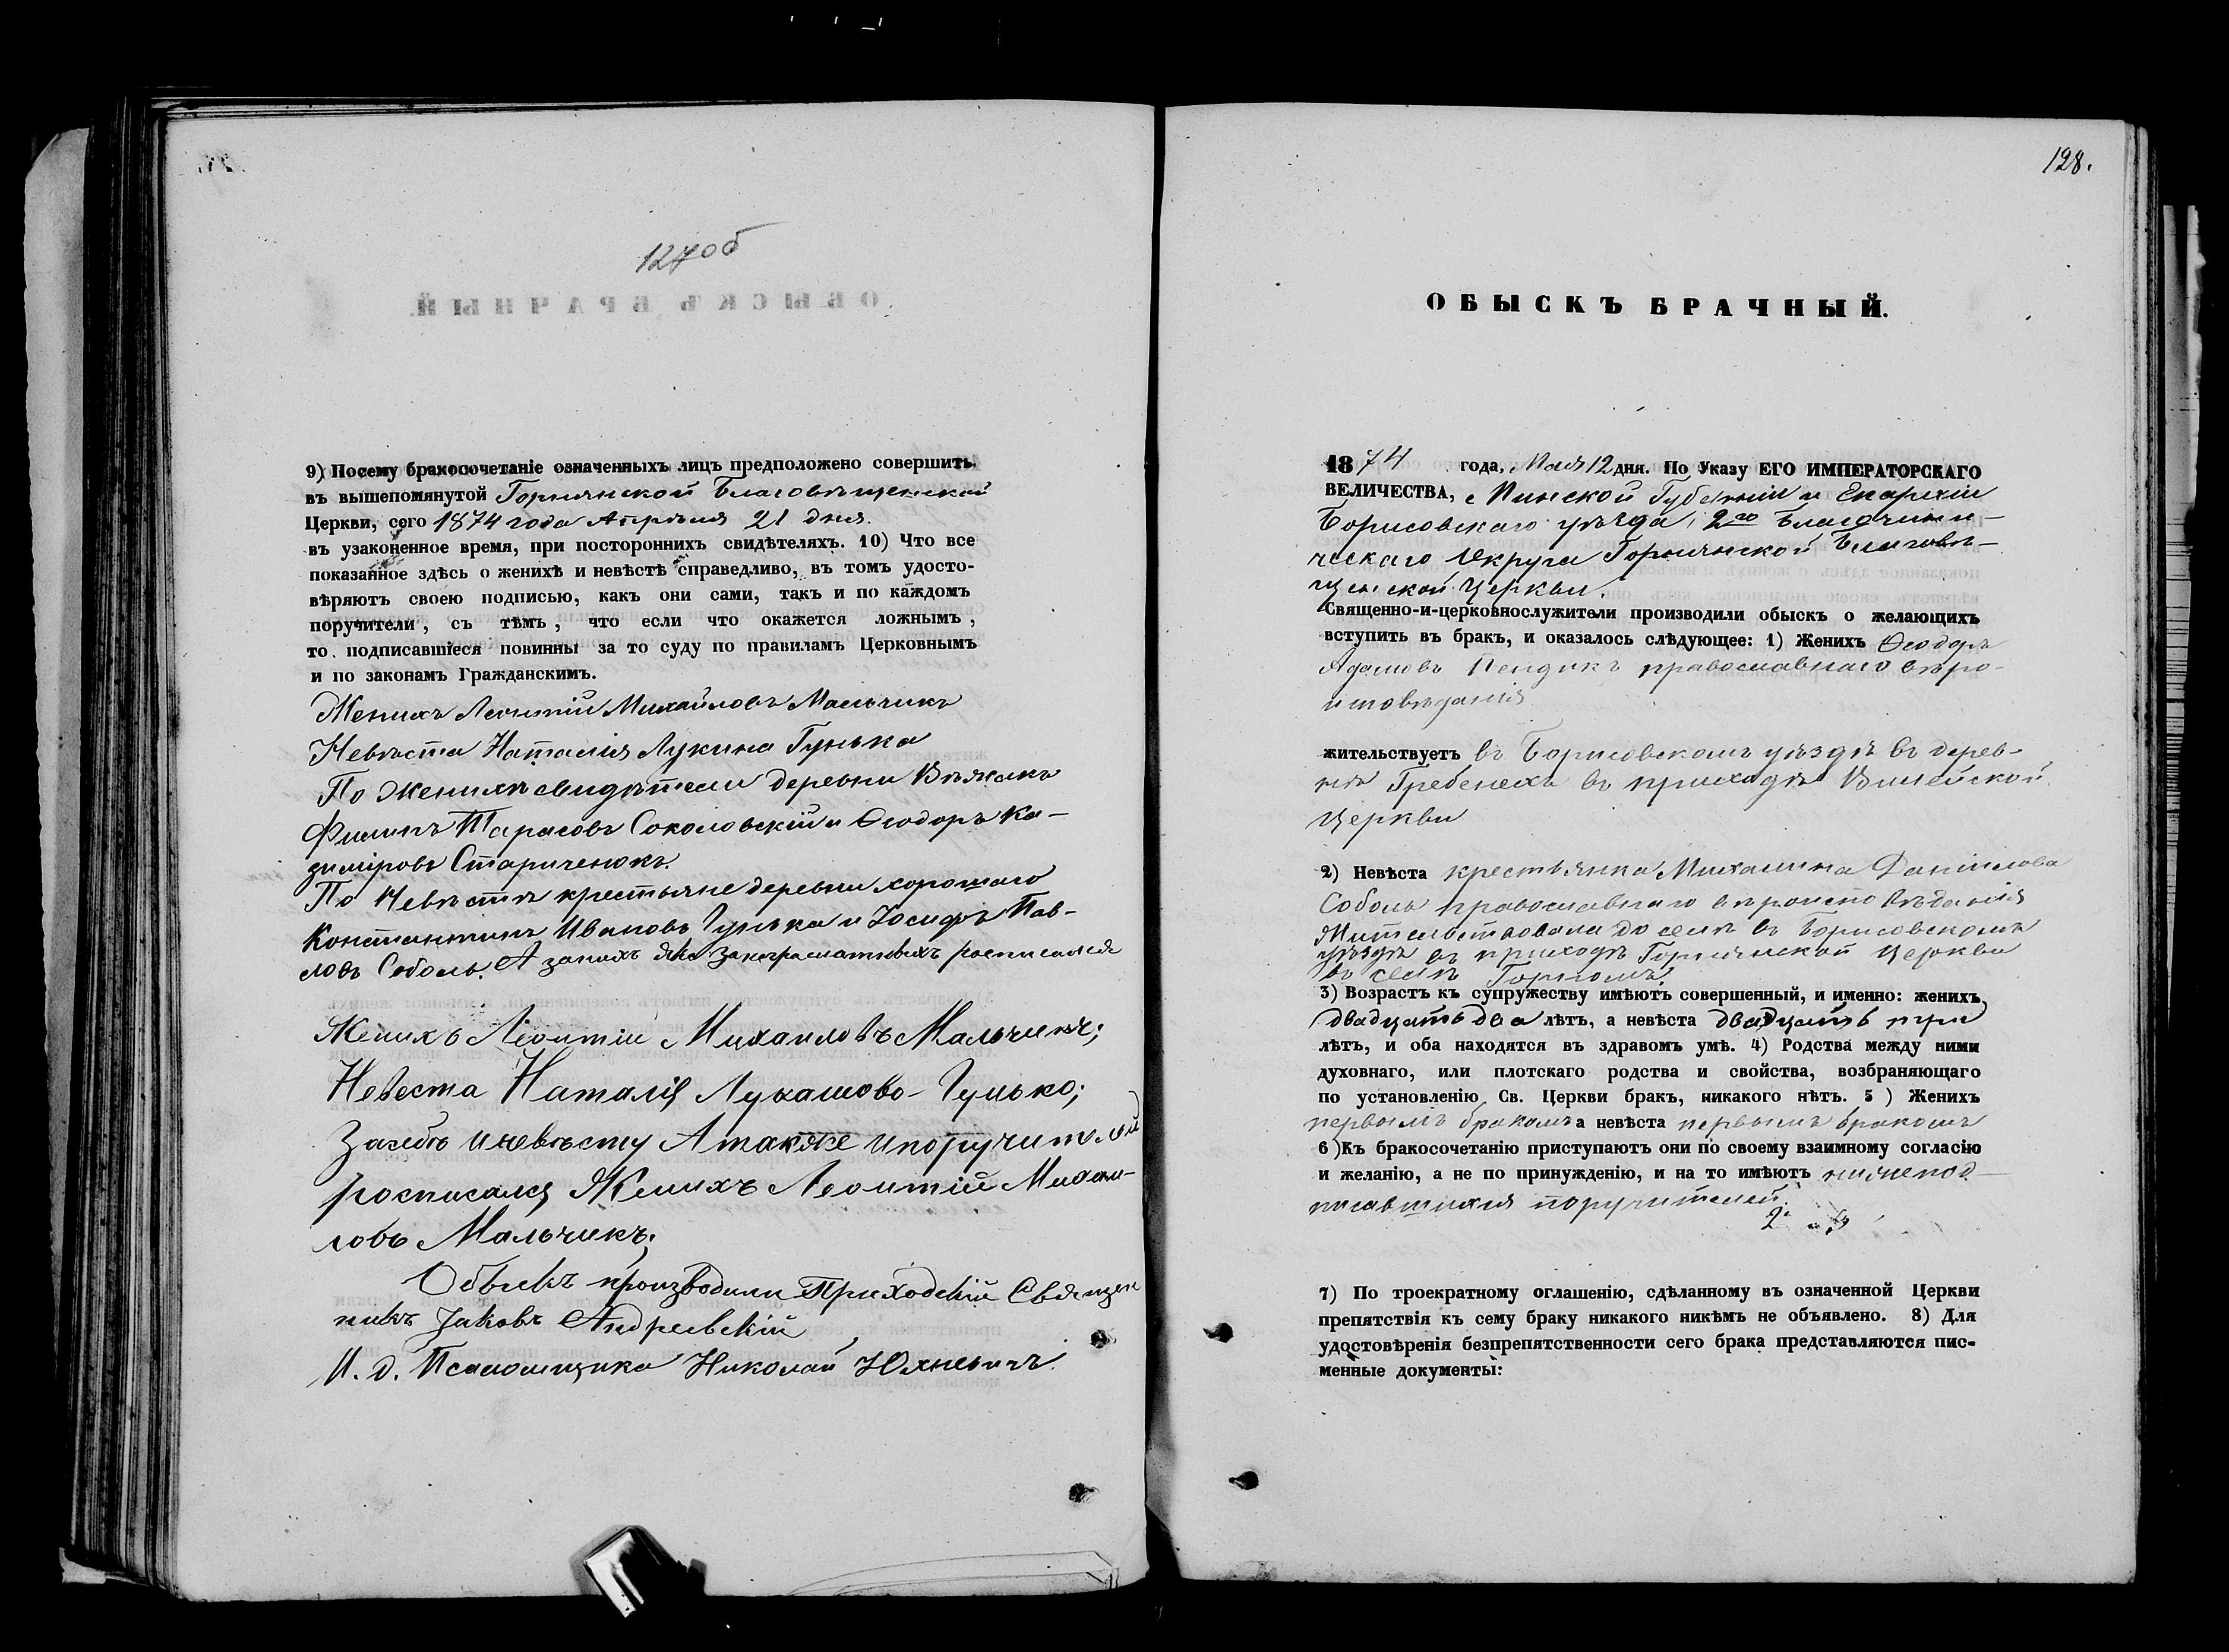 127об
9) Посему бракосочетаніе означенныхъ лицъ предположено совершить
въ вышепомянутой Горнянской Благовѣщенской
Церкви, сего 1874 года Апрѣля 21 дня.
въ узаконенное время, при постороннихъ свидѣтеляхъ. 10) Что все
показанное здѣсь о женихѣ и невѣстѣ справедливо, въ томъ удосто-
вѣряютъ своею подписью, какъ они сами, такъ и по каждомъ
поручители, съ тѣмъ, что если что окажется ложнымъ,
то подписавшіеся повинны за то суду по правиламъ Церковнымъ
и по законамъ Гражданскимъ.
Женихъ Леонтій Михайловъ Мальчикъ
Невѣста Наталія Лукина Гунька
По Женихѣ свидѣтели деревни
Филипъ Тарасовъ Соколовскій и Ѳеодоръ Ка-
зиміровъ Стариченокъ.
По Невѣстѣ крестьяне деревни хорошаго
Константинъ Ивановъ Гунька и Іосифъ Пав-
ловъ Соболь. А за нихъ росписался
Женихъ Леонтій Михаиловъ Мальчикъ;
Невеста Наталія Лукашово-Гунько;
За себѣ и невѣсту А также и поручителей
росписался Женихъ Леонтій Михаи-
ловъ Мальчикъ;
Обыскъ производили Приходскій Священ
никъ Іаковъ Андреевскій
И. д. Псаломщика Николай Юхневичъ.
128.
ОБЫСКЪ БРАЧНЫЙ.
1874 года, Мая 12 дня. По Указу ЕГО ИМПЕРАТОРСКАГО
ВЕЛИЧЕСТВА, Минской Губерніи и Епархіи
Борисовскаго уѣзда, 2го Благочинни-
ческаго Округа Горнянской Благовѣ-
щенской Церкви.
Священно-и-церковнослужители производили обыскъ о желающихъ
вступить въ бракъ, и оказалось слѣдующее: 1) Женихъ Ѳеодоръ
Адамовъ Пендикъ православнаго вѣро-
исповѣданія
жительствуетъ въ Борисовскомъ уѣздѣ въ дерев-
нѣ Гребенехъ въ приходѣ
Церкви
2) Невѣста крестьянка Михалина Даніилова
Соболь православнаго вѣроисповѣданія
Жительствовала до селѣ въ Борисовскомъ
уѣздѣ въ приходѣ Горнянской Церкви
въ селѣ Горномъ.
3) Возрастъ къ супружеству имѣютъ совершенный, и именно: женихъ
двадцать два лѣтъ, а невѣста двадцать три
лѣтъ, и оба находятся въ здравомъ умѣ. 4) Родства между ними
духовнаго, или плотскаго родства и свойства, возбраняющаго
по установленію Св. Церкви бракъ, никакого нѣтъ. 5) Женихъ
первымъ бракомъ а невѣста первымъ бракомъ
6) Къ бракосочетанію приступаютъ они по своему взаимному согласію
и желанію, а не по принужденію, и на то имѣютъ нижепод-
писавшихся поручителей.
7) По троекратному оглашенію, сдѣланному въ означенной Церкви
препятствія къ сему браку никакого никѣмъ не объявлено. 8) Для
удостовѣренія безпрепятственности сего брака представляются пис-
менные документы: